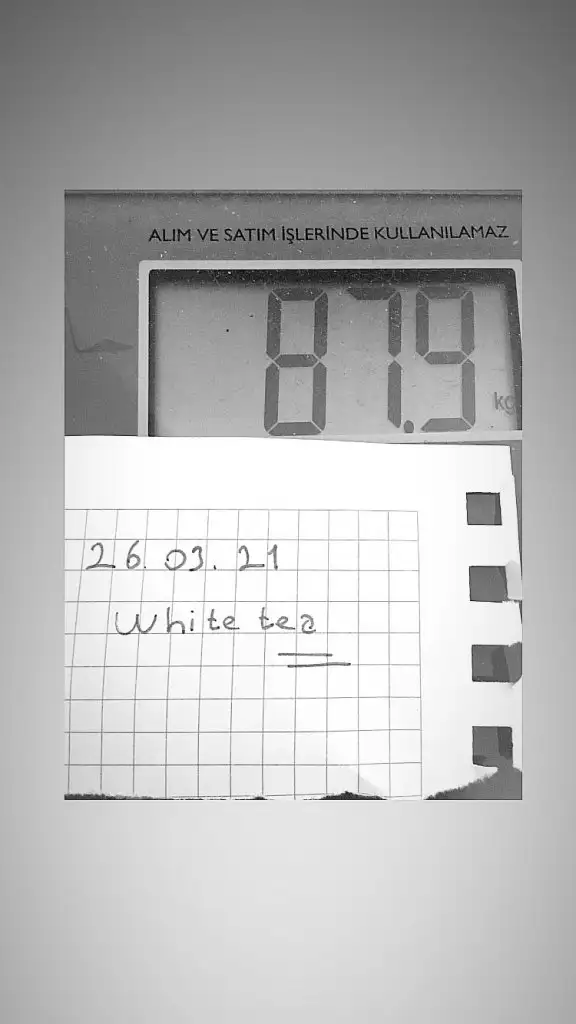 ALIM VE SATIM İŞLERİNDE KULLANILAMAZ
87.9
kg
26.03.21
White tea